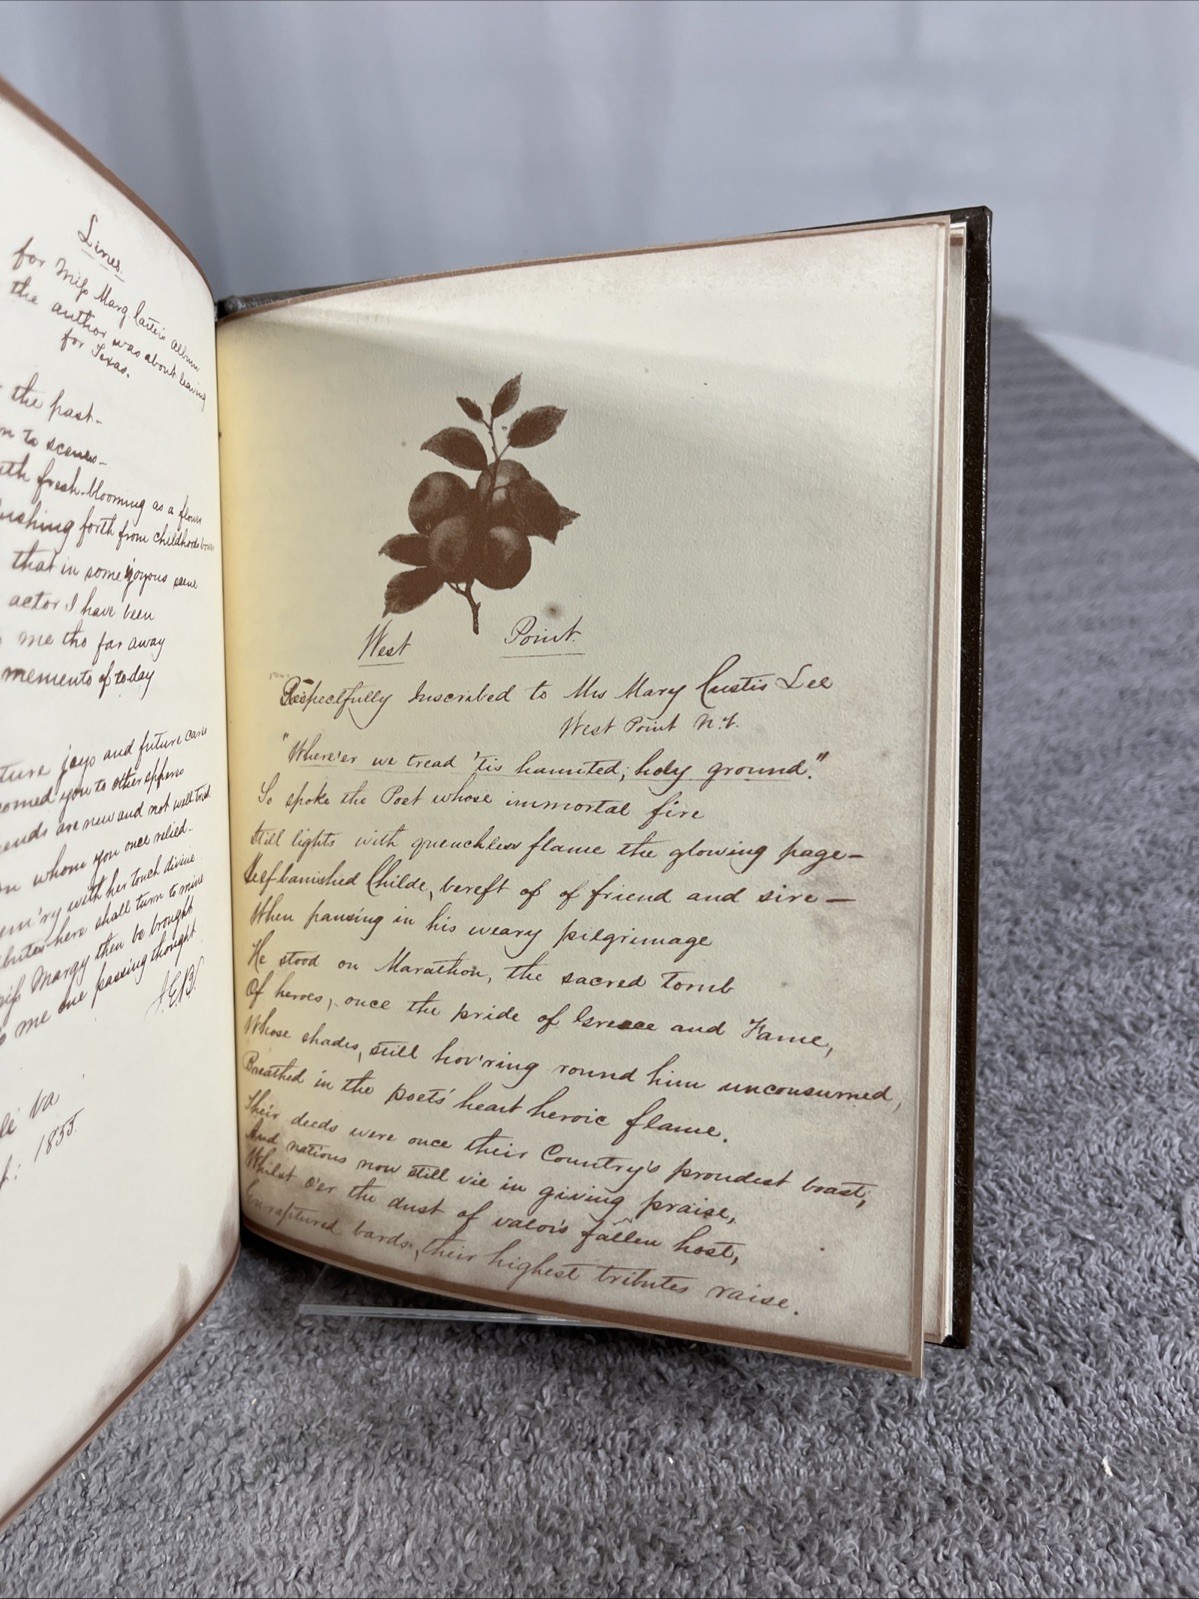 Lines.
for Miss Mary Custis album
the author was about leaving
for Texas.
the past-
to scenes-
fresh-blooming as a flower
forth from childhoods
that in some joyous scene
actor I have been
me tho far away
mementos of today
joys and future cares
you to other spheres
are new and not well tried
whom you once relied-
with her touch divine
here shall turn to mine
Margy then be brought
me one passing thought
Va
1855.
West Point.
Respectfully Inscribed to Mrs Mary Custis Lee
West Point N.Y.
"Where'er we tread 'tis haunted, holy ground."
So spoke the Poet whose immortal fire
Still lights with quenchless flame the glowing page-
Self-banished Childe, bereft of of friend and sire-
When pausing in his weary pilgrimage
He stood on Marathon, the sacred tomb
Of heroes, once the pride of Greece and Fame,
Whose shades, still hov'ring round him unconsumed,
Breathed in the poets' heart heroic flame.
Their deeds were once their Country's proudest boast,
And nations now still vie in giving praise,
Whilst o'er the dust of valor's fallen host,
Enraptured bards, their highest tributes raise.